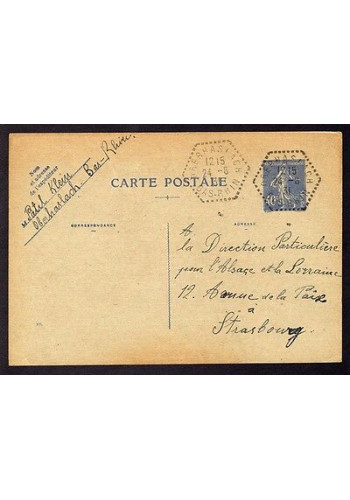 Nom
et adresse
de l'expéditeur
M. Klein
Oberhaslach Bas-Rhin.
OBERHASLACH
12 15
24 -8
BAS-RHIN
CARTE POSTALE
CORRESPONDANCE
ADRESSE
A
la Direction Particulière
pour l'Alsace et la Lorraine
12, Avenue de la Paix
à
Strasbourg.